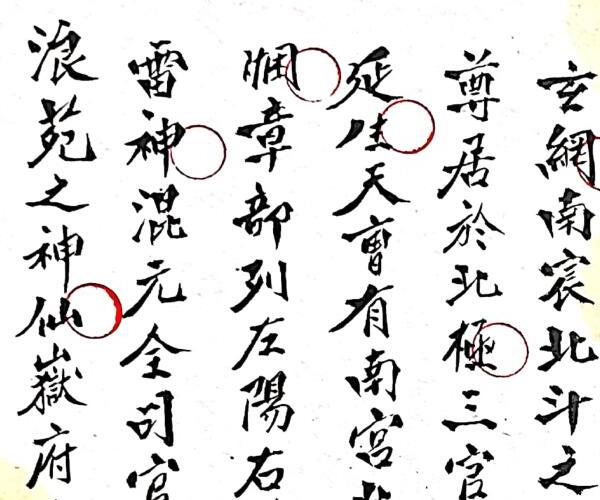 玄網南宸北斗之
尊居於北極三官
延生天曹有南宮北
章部列左陽右
雷神混元全司官
浪苑之神仙嶽府